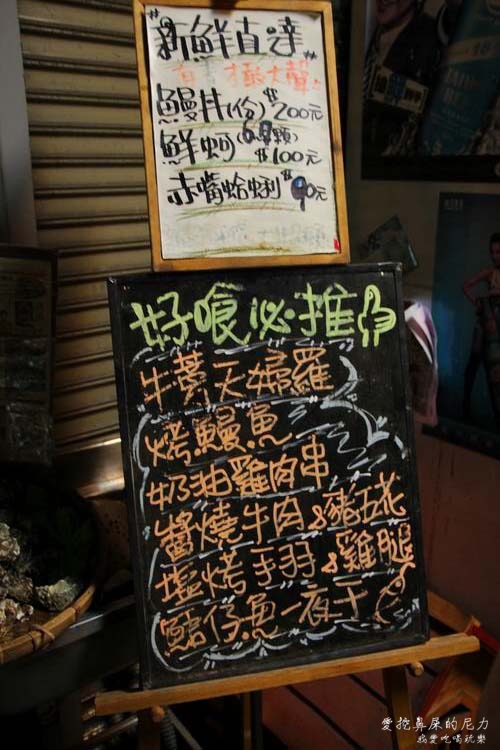 新鮮直達
鰻片(份)$200元
鮮蚵(6.9顆)
$100元
赤嘴蛤蜊$90元
好喰必推
牛蒡天婦羅
烤鰻魚
奶油雞肉串
醬燒牛肉&豬五花
塩烤手羽&雞腿
鯖仔魚一夜干
愛挖鼻屎的尼力
我愛吃喝玩樂